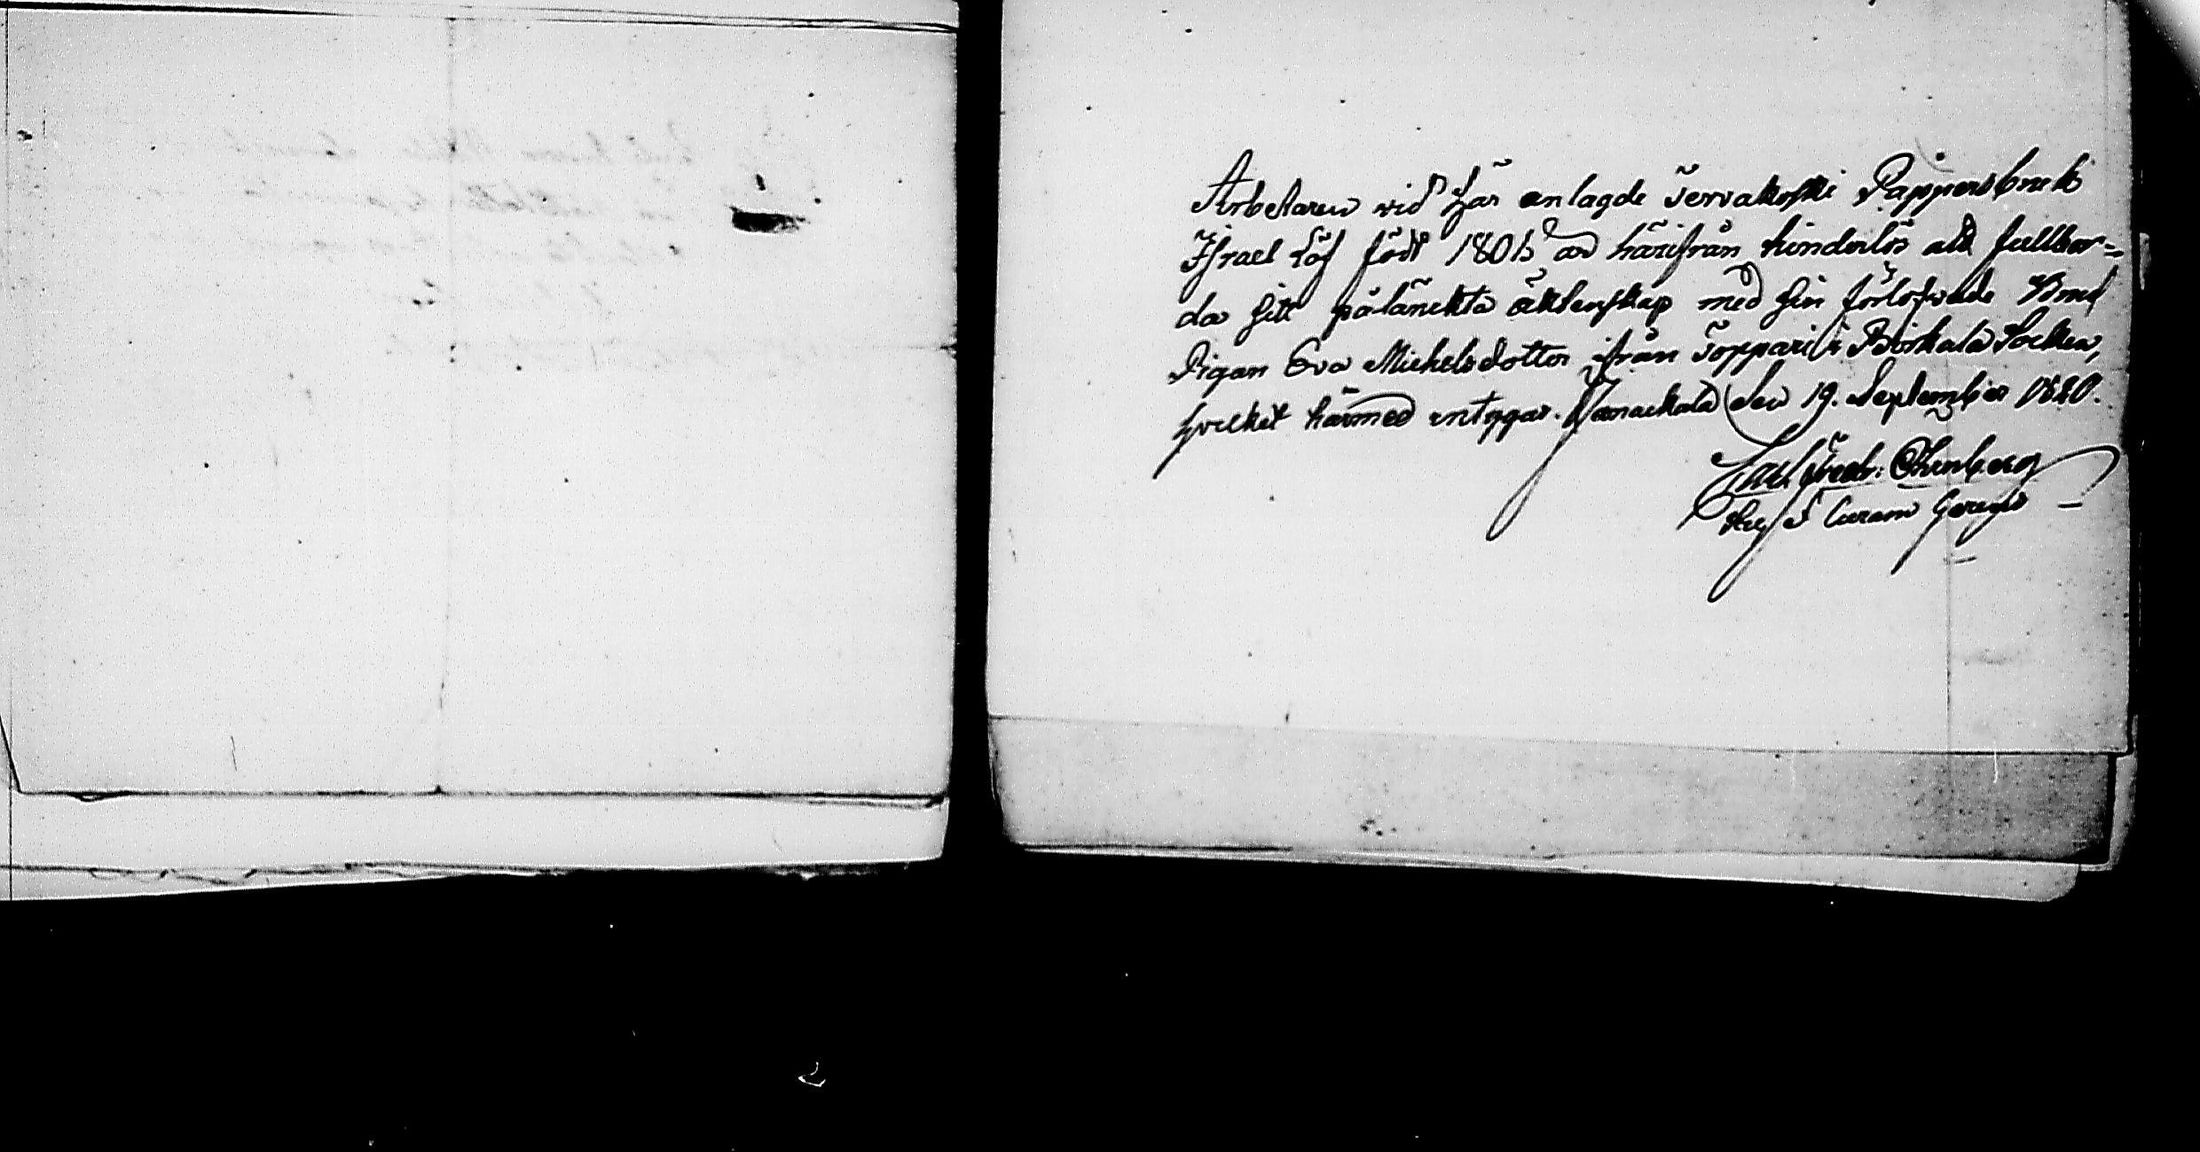 Arbetaren vid här anlagde Tervakoski Pappersbruk
Israel Löf född 1801 är härifrån hinderlös att fullbor-
da sitt påtänckta äktenskap med sin förlofvade Brud
Pigan Eva Michelsdotter ifrån Toppari i Birkala Socken,
hvilket härmed intygar. Janackala den 19. September 1820.
Carl Fredr:
Curam Gerens